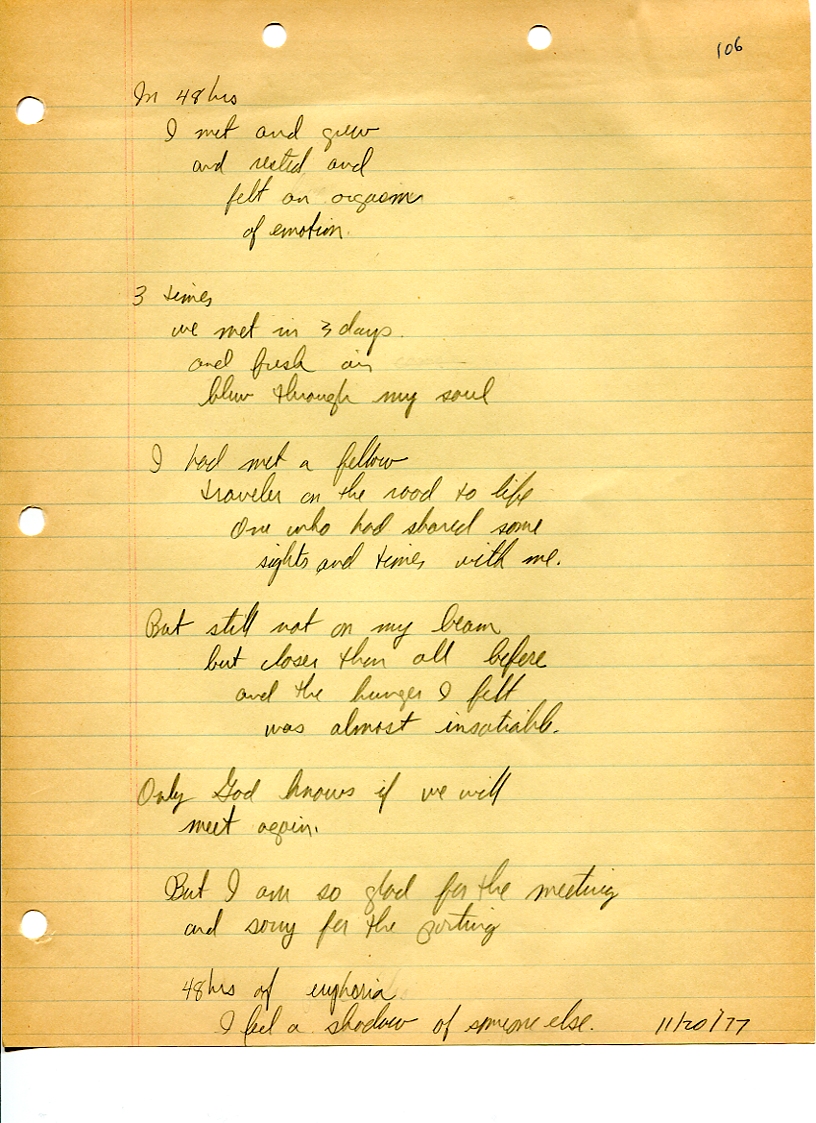 106
In 48 hrs
I met and grew
and rested, and
felt an orgasm
of emotion.
3 times
we met in 3 days.
and fresh air
blew through my soul
I had met a fellow
traveler on the road to life
One who had shared some
sights and times with me.
But still not on my beam
but closer than all before
and the hunger I felt
was almost insatiable.
Only God knows if we will
meet again.
But I am so glad for the meeting
and sorry for the parting
48 hrs of euphoria
I feel a shadow of someone else.
11/20/77